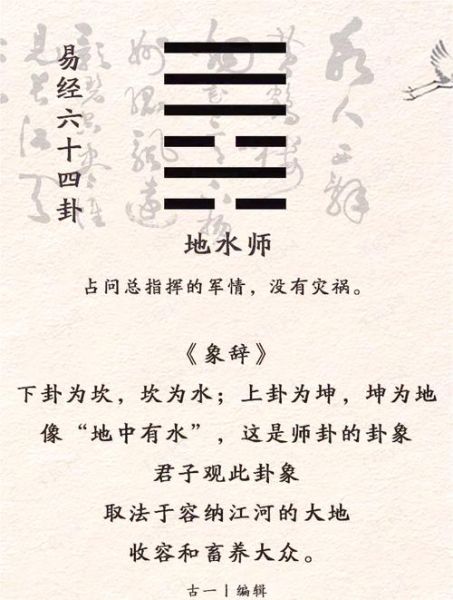 易经六十四卦
地水师
占问总指挥的军情，没有灾祸。
《象辞》
下卦为坎，坎为水；上卦为坤，坤为地
像“地中有水”，这是师卦的卦象
君子观此卦象
取法于容纳江河的大地
收容和畜养大众。
古一丨编辑